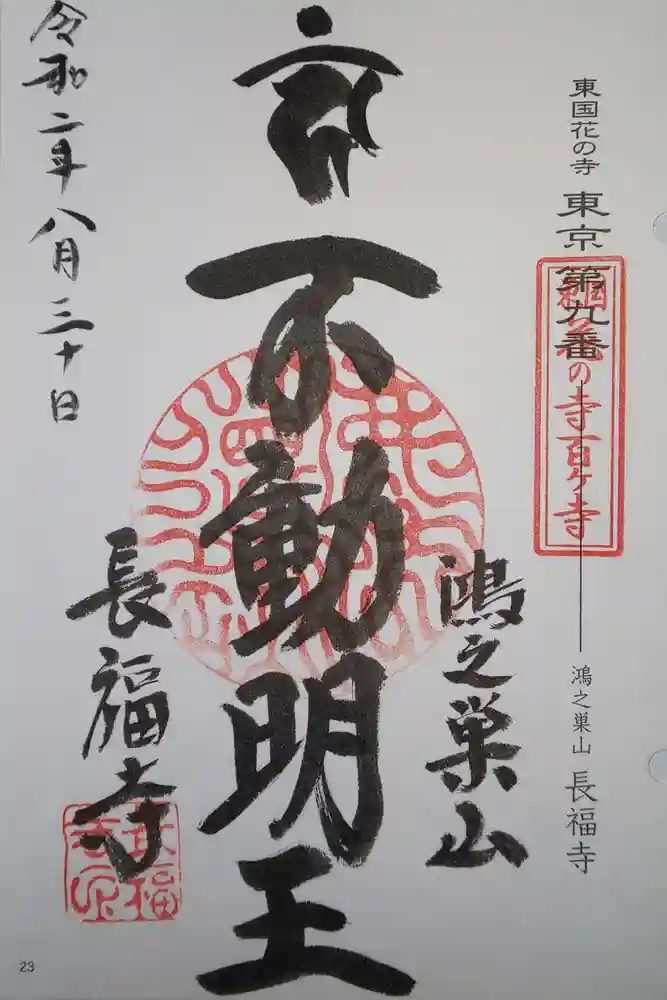 東国花の寺 東京 第九番 鴻之巣山 長福寺
東国花の寺百ケ寺
鴻之巣山
不動明王
長福寺
令和二年八月三十日
23